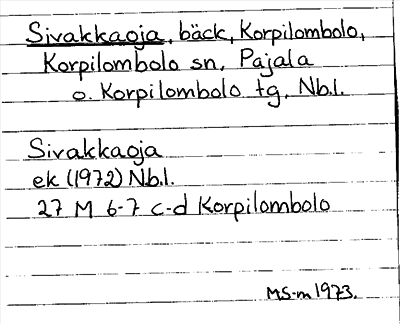 Sivakkaoja, bäck, Korpilombolo,
Korpilombolo sn, Pajala
o. Korpilombolo tg, Nb.l.
Sivakkaoja
ek (1972) Nb.l.
27 M 6-7 c-d Korpilombolo
MS-m 1973.